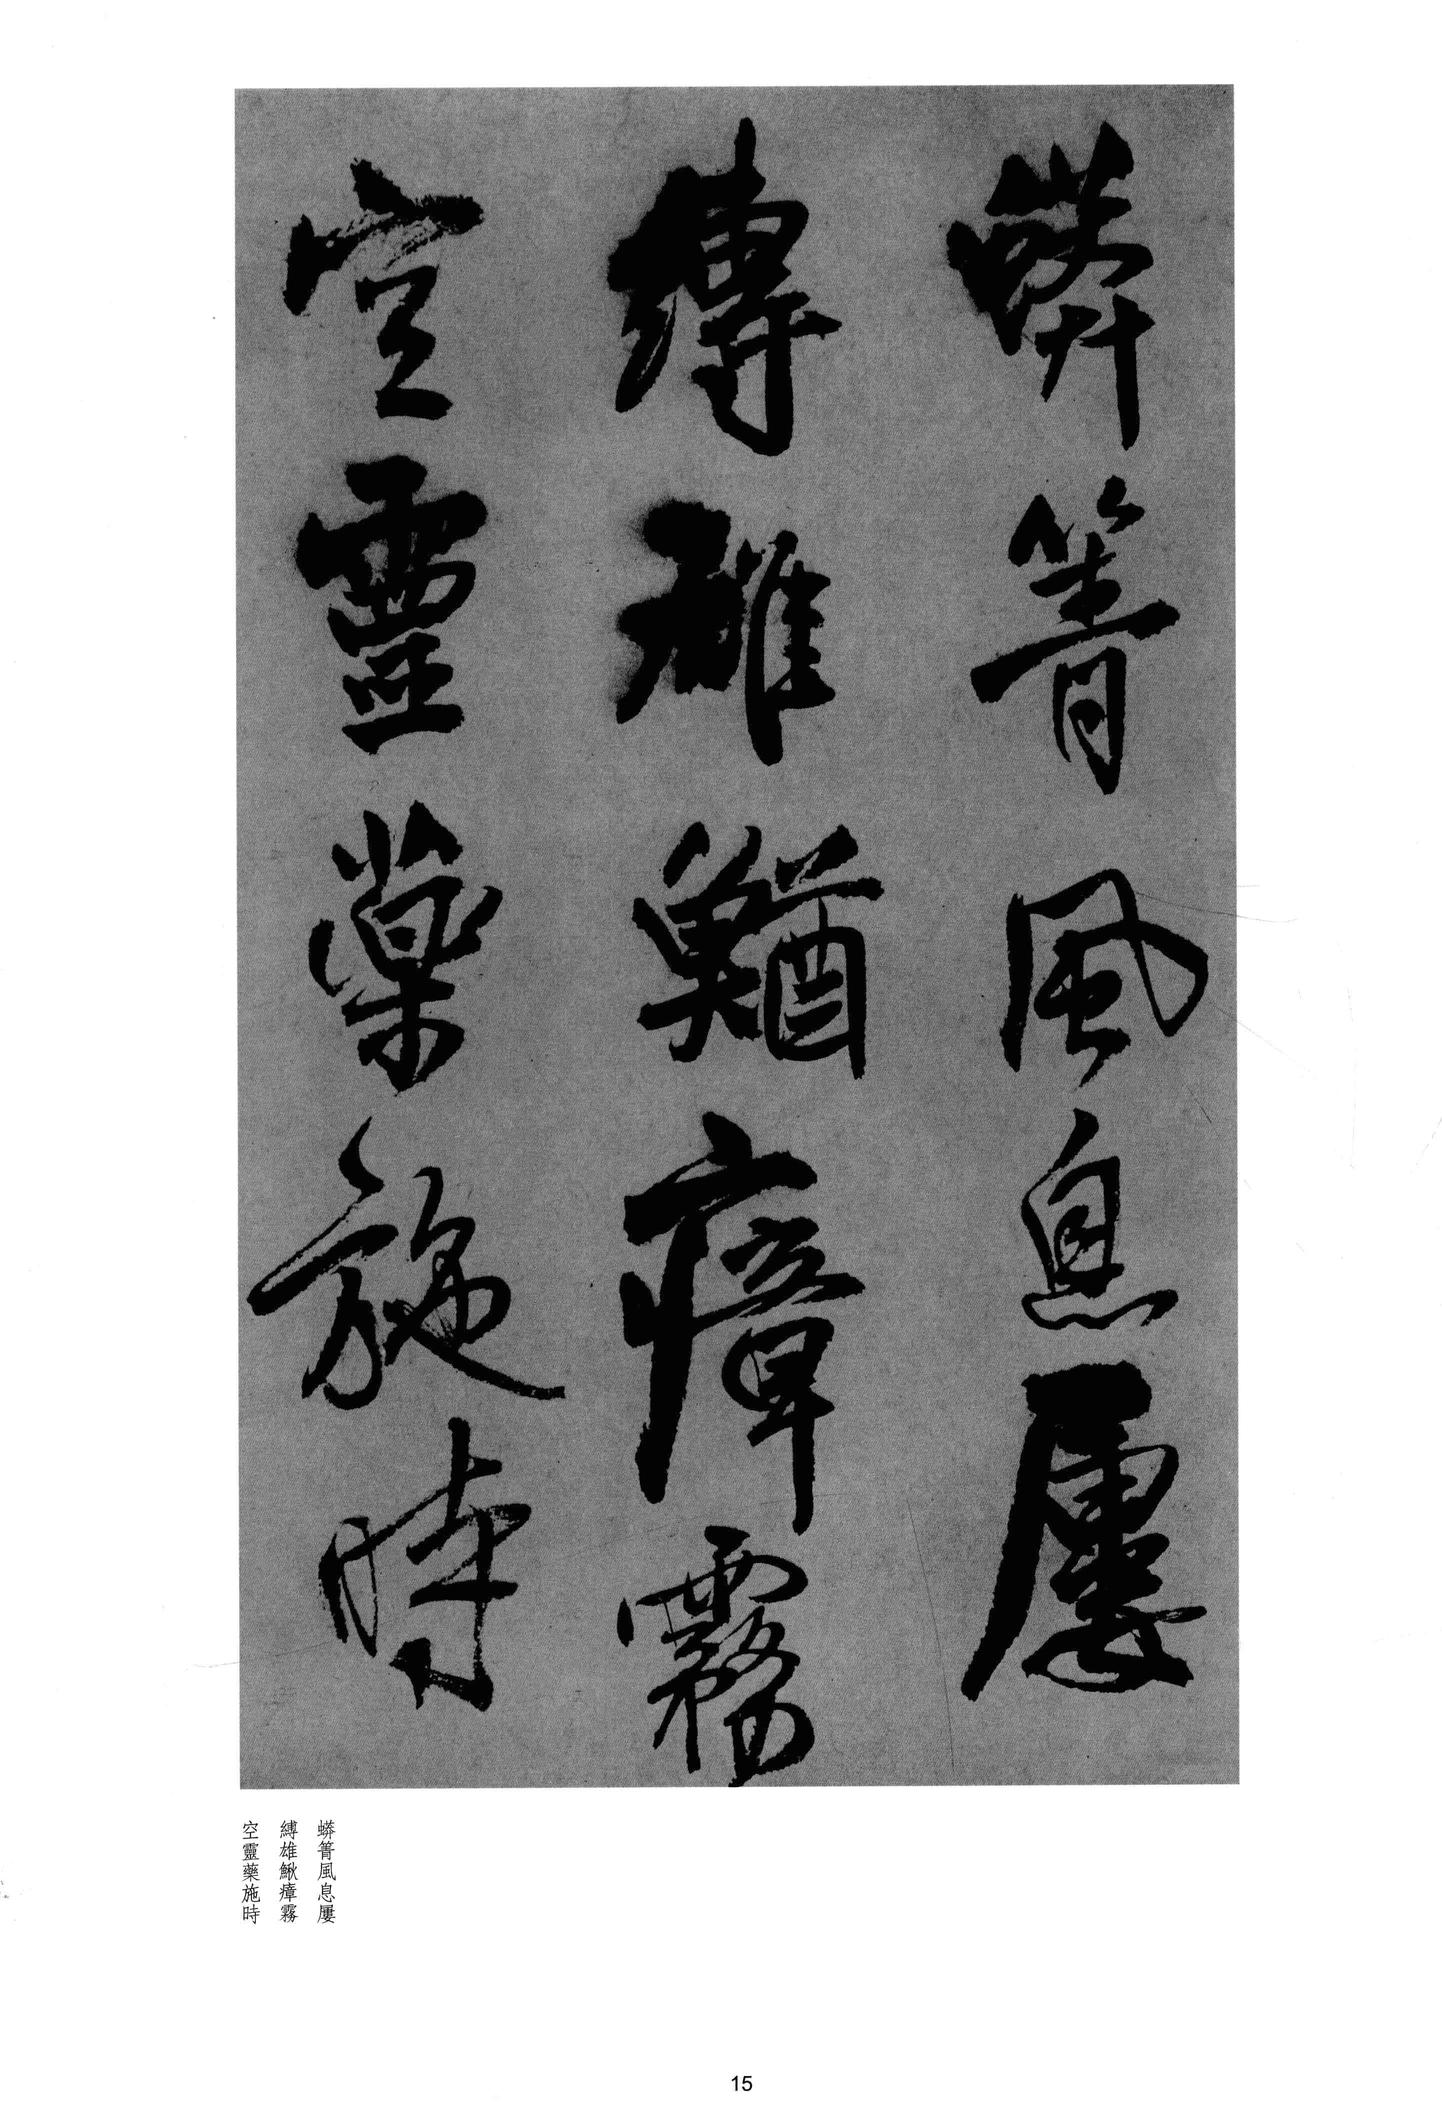 蟒箐風息屢
縛雄鰌瘴霧
空靈藥施時
蟒箐風息屢
縛雄鰍瘴霧
空靈藥施時
15